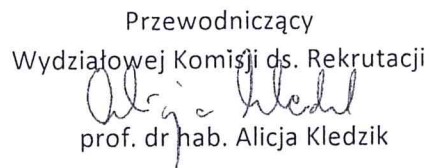 Przewodniczący
Wydziałowej Komisji ds. Rekrutacji
Alicja Kledzik
prof. dr hab. Alicja Kledzik